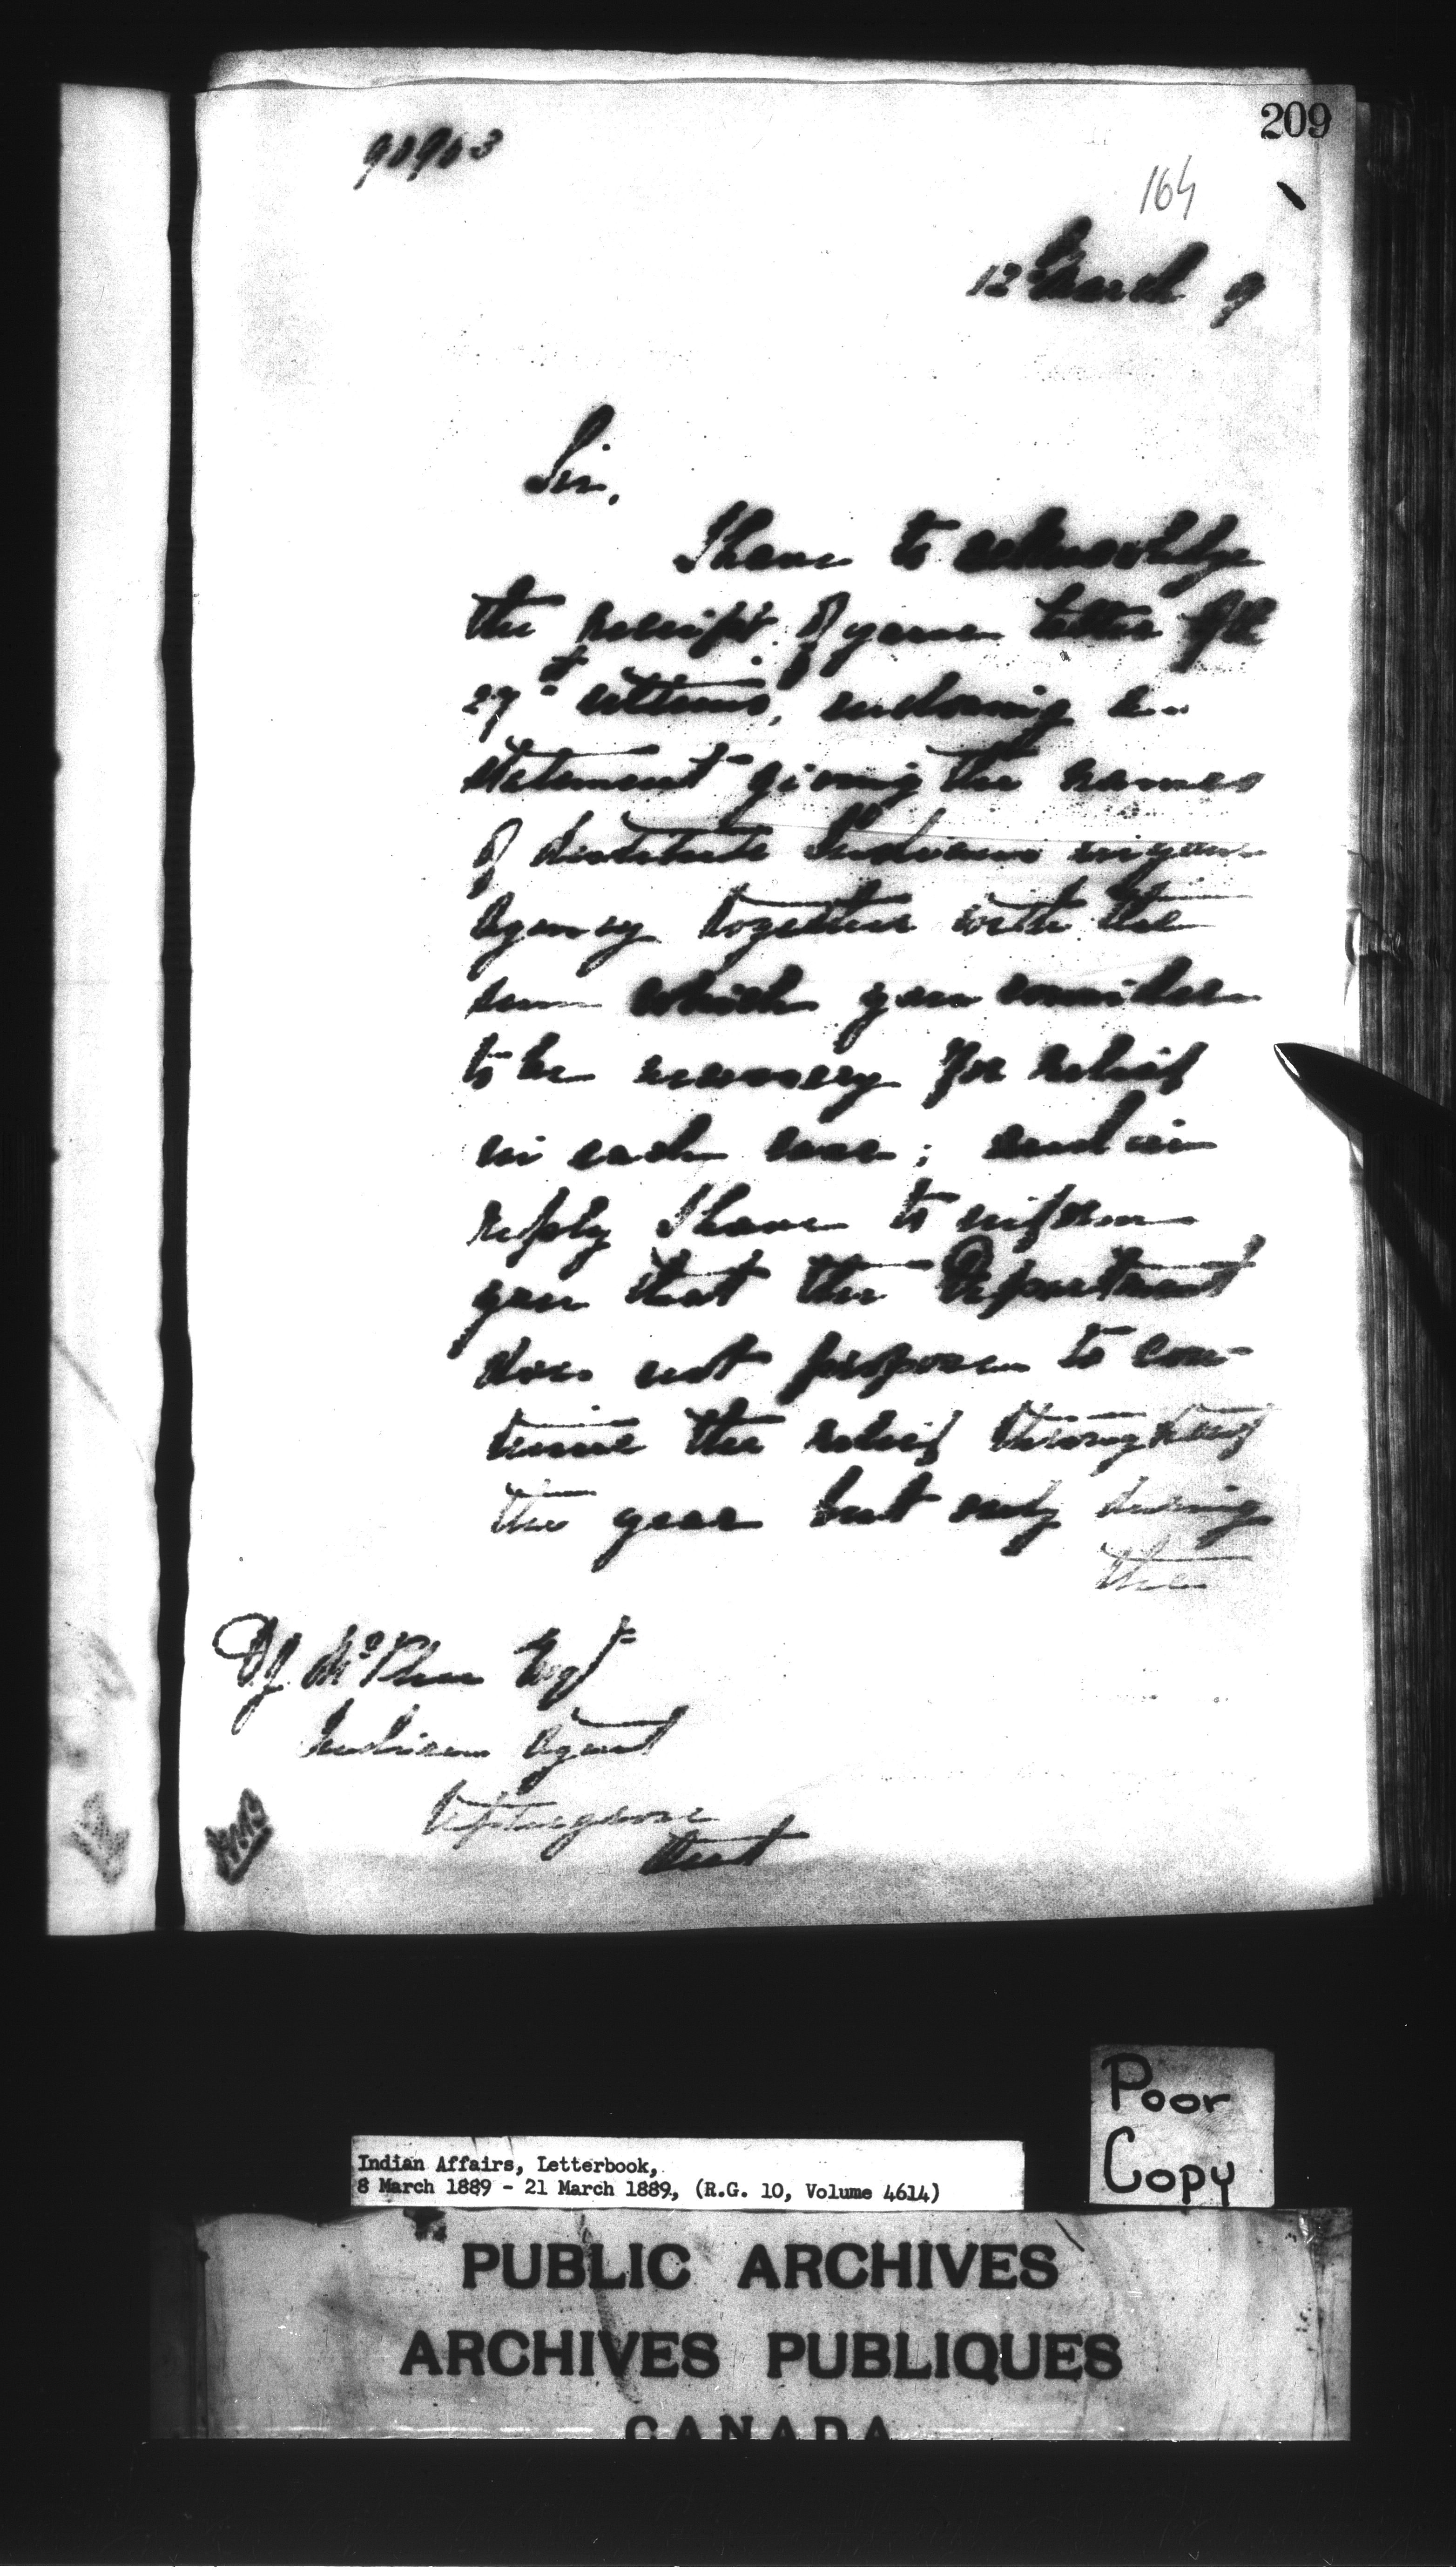 209
90963
164
12 March 9
Sir,
I have to acknowledge
the receipt of your letter of the
27th ultimo, enclosing a
statement giving the names
of destitute Indians in your
Agency together with the
sum which you consider
to be necessary for relief
in each case; and in
reply I have to inform
you that the Department
does not propose to con-
tinue the relief throughout
the year but only during
the
D.J. McPhee Esqr
Indian Agent
Uptergrove
Ont
Poor
Copy
Indian Affairs, Letterbook,
8 March 1889 - 21 March 1889, (R.G. 10, Volume 4614)
PUBLIC ARCHIVES
ARCHIVES PUBLIQUES
CANADA